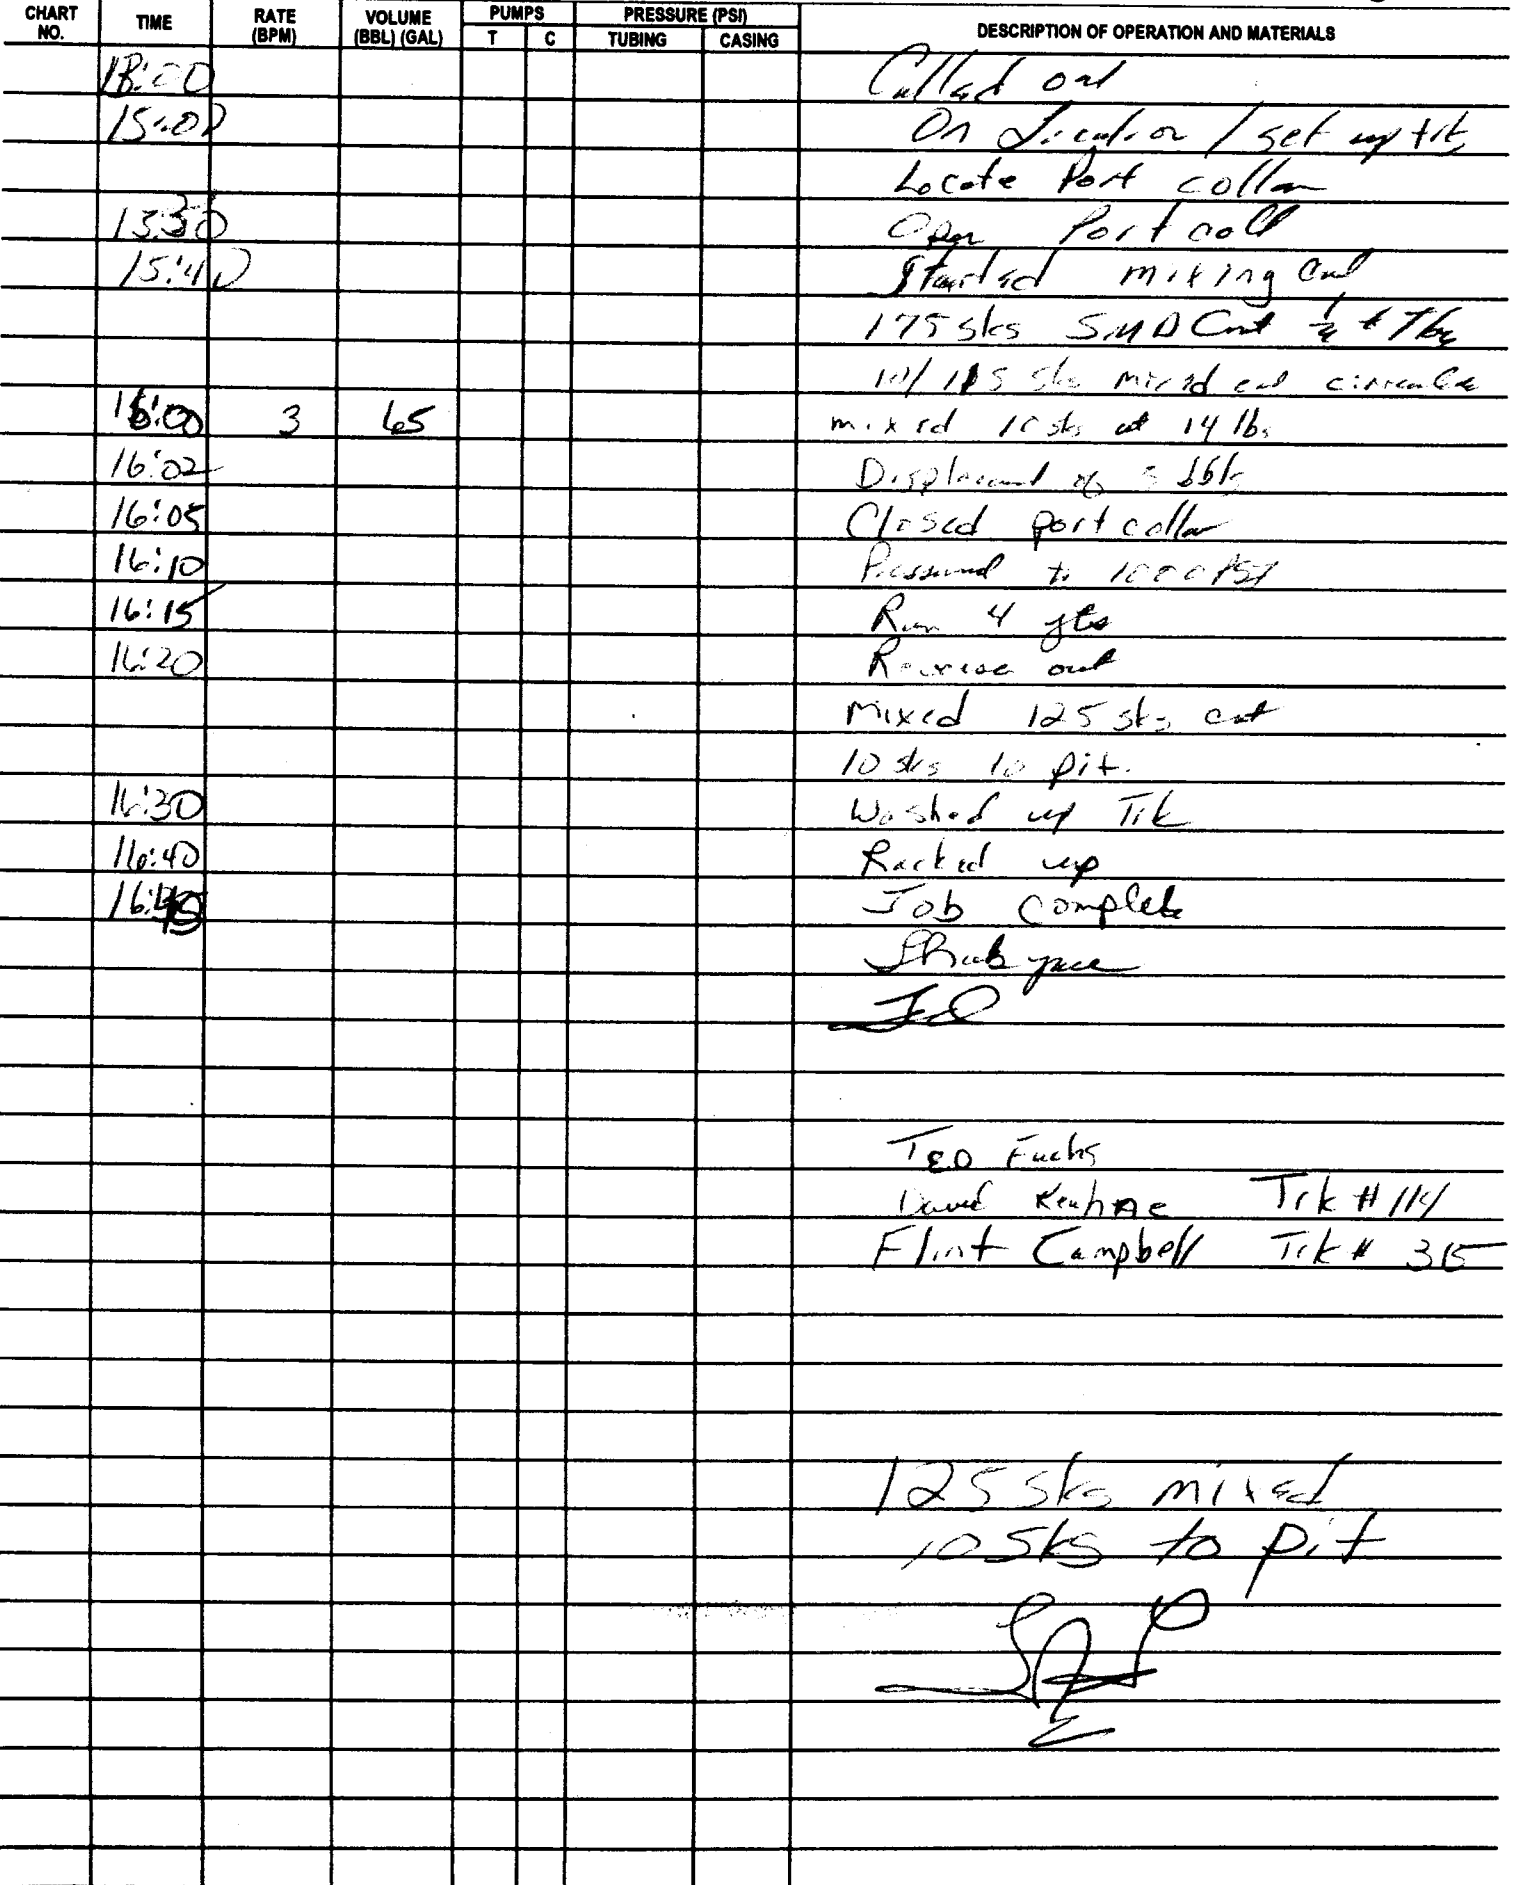 CHART NO. TIME RATE (BPM) VOLUME (BBL) (GAL) PUMPS T C PRESSURE (PSI) TUBING CASING DESCRIPTION OF OPERATION AND MATERIALS
Called out
15:00 On Location / set up trk
Locate Port collar
Open Port coll
15:40 Started mixing cmt
175 sks SMD Cmt
sks mixed cmt circulate
16:00 3 65 mixed 10 sks at 14 lbs
16:02 Displacement of bbls
16:05 Closed port collar
16:10 Pressured to 1000 PSI
16:15 Run 4 jts
16:20 Reverse out
Mixed 125 sks cmt
10 sks to pit.
16:30 Washed up Trk
16:40 Racked up
Job Complete
Thank you
TED Fuchs
David Trk # 114
Flint Campbell Trk # 315
125 sks mixed
10 sks to pit